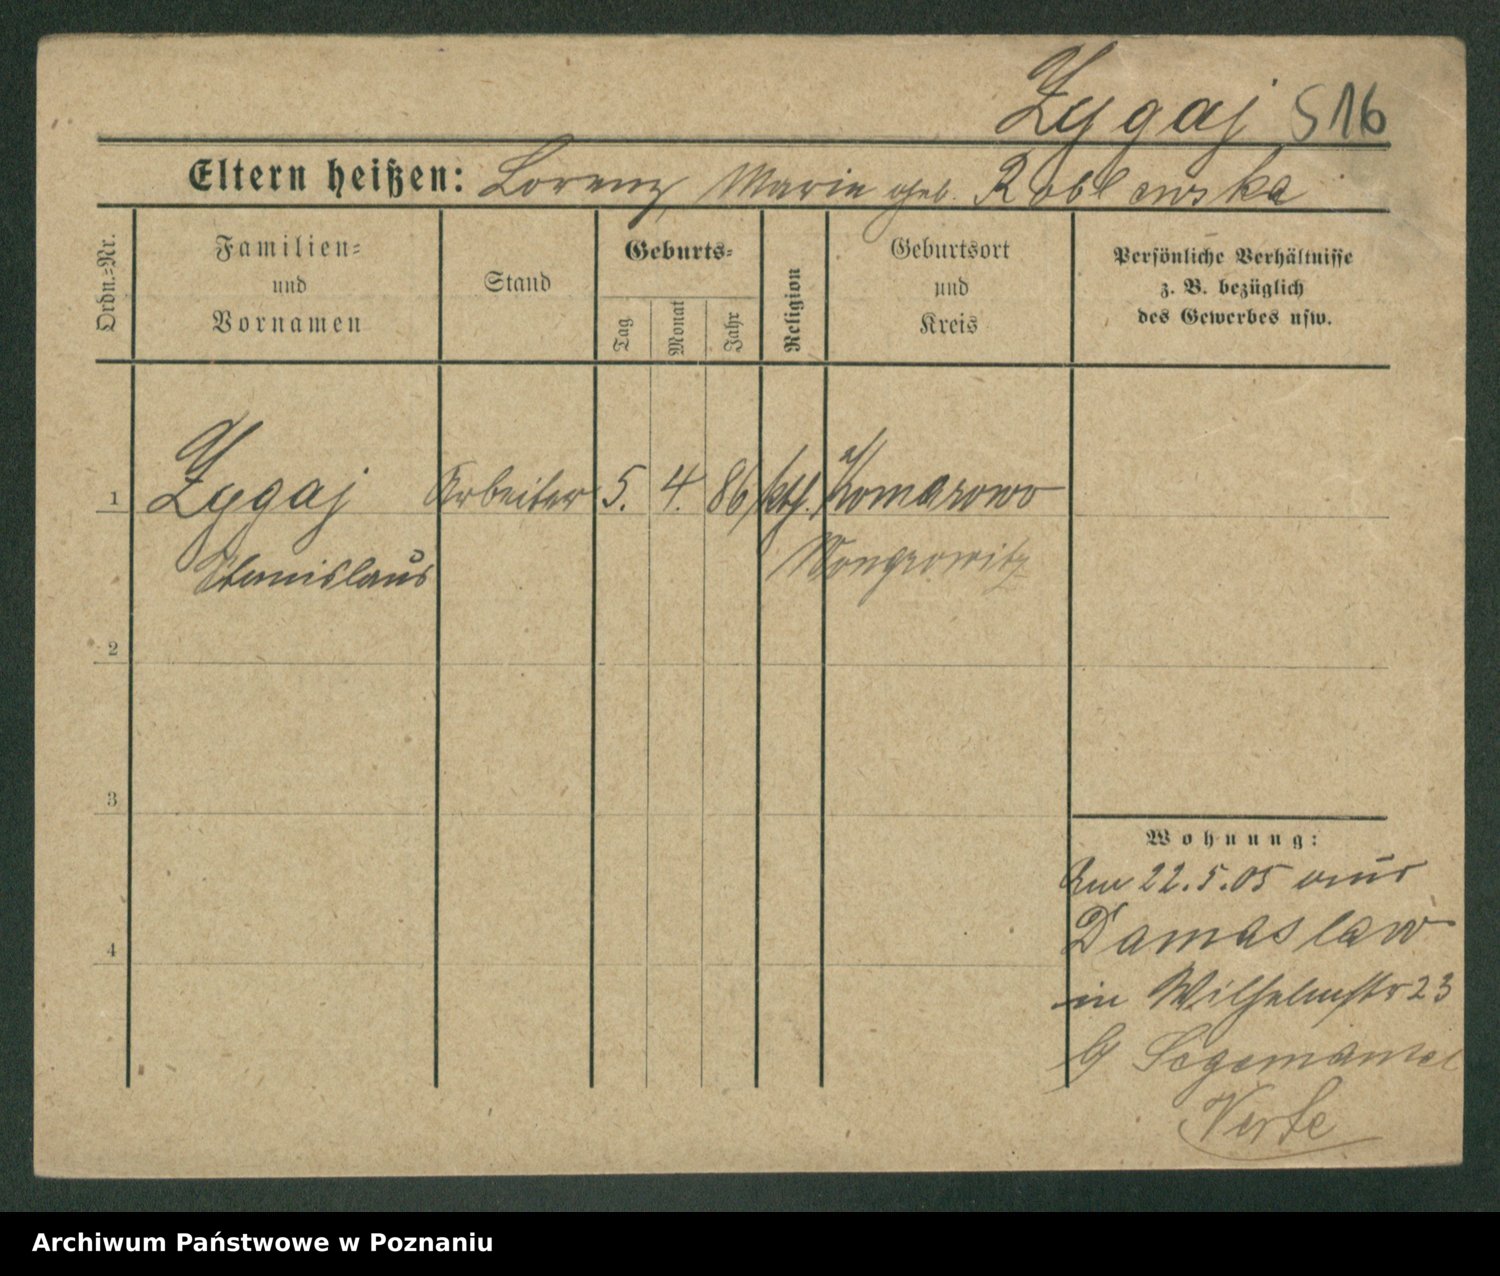 Zygaj 516
Eltern heißen: Lorenz, Marie geb. Roblewska
Ordn.=Nr.
Familien=
und
Vornamen
Stand
Geburts=
Tag
Monat
Jahr
Religion
Geburtsort
und
Kreis
Persönliche Verhältnisse
z. B. bezüglich
des Gewerbes usw.
1 Zygaj Arbeiter 5. 4. 86 kth. Komarowo
Stanislaus Wongrowitz
2
3
4
Wohnung:
Am 22.5.05 aus
Damaslaw
in Wilhelmstr 23
Archiwum Państwowe w Poznaniu